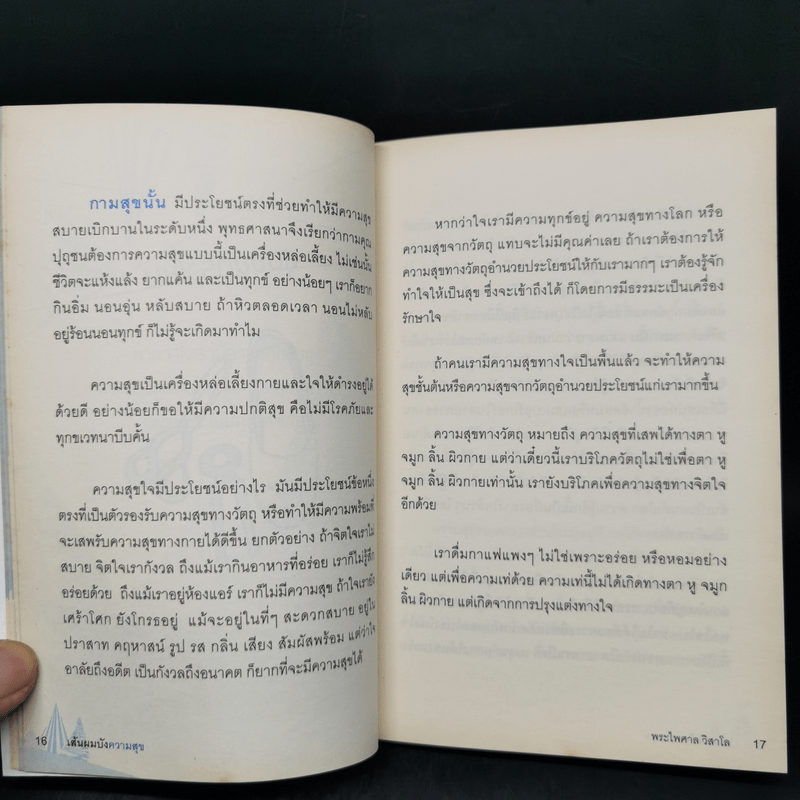 กามสุขนั้น มีประโยชน์ตรงที่ช่วยทำให้มีความสุข
สบายเบิกบานในระดับหนึ่ง พุทธศาสนาจึงเรียกว่ากามคุณ
ปุถุชนต้องการความสุขแบบนี้เป็นเครื่องหล่อเลี้ยง ไม่เช่นนั้น
ชีวิตจะแห้งแล้ง ยากแค้น และเป็นทุกข์ อย่างน้อยๆ เราก็อยาก
กินอิ่ม นอนอุ่น หลับสบาย ถ้าหิวตลอดเวลา นอนไม่หลับ
อยู่ร้อนนอนทุกข์ ก็ไม่รู้จะเกิดมาทำไม
ความสุขเป็นเครื่องหล่อเลี้ยงกายและใจให้ดำรงอยู่ได้
ด้วยดี อย่างน้อยก็ขอให้มีความปกติสุข คือไม่มีโรคภัยและ
ทุกขเวทนาบีบคั้น
ความสุขใจมีประโยชน์อย่างไร มันมีประโยชน์ข้อหนึ่ง
ตรงที่เป็นตัวรองรับความสุขทางวัตถุ หรือทำให้มีความพร้อมที่
จะเสพรับความสุขทางกายได้ดีขึ้น ยกตัวอย่าง ถ้าจิตใจเราไม่
สบาย จิตใจเรากังวล ถึงแม้เรากินอาหารที่อร่อย เราก็ไม่รู้สึก
อร่อยด้วย ถึงแม้เราอยู่ห้องแอร์ เราก็ไม่มีความสุข ถ้าใจเรายัง
เศร้าโศก ยังโกรธอยู่ แม้จะอยู่ในที่ๆ สะดวกสบาย อยู่ใน
ปราสาท คฤหาสน์ รูป รส กลิ่น เสียง สัมผัสพร้อม แต่ว่าใจ
อาลัยถึงอดีต เป็นกังวลถึงอนาคต ก็ยากที่จะมีความสุขได้
16 เส้นผมบังความสุข
หากว่าใจเรามีความทุกข์อยู่ ความสุขทางโลก หรือ
ความสุขจากวัตถุ แทบจะไม่มีคุณค่าเลย ถ้าเราต้องการให้
ความสุขทางวัตถุอำนวยประโยชน์ให้กับเรามากๆ เราต้องรู้จัก
ทำใจให้เป็นสุข ซึ่งจะเข้าถึงได้ ก็โดยการมีธรรมะเป็นเครื่อง
รักษาใจ
ถ้าคนเรามีความสุขทางใจเป็นพื้นแล้ว จะทำให้ความ
สุขชั้นต้นหรือความสุขจากวัตถุอำนวยประโยชน์แก่เรามากขึ้น
ความสุขทางวัตถุ หมายถึง ความสุขที่เสพได้ทางตา หู
จมูก ลิ้น ผิวกาย แต่ว่าเดี๋ยวนี้เราบริโภควัตถุไม่ใช่เพื่อตา หู
จมูก ลิ้น ผิวกายเท่านั้น เรายังบริโภคเพื่อความสุขทางจิตใจ
อีกด้วย
เราดื่มกาแฟแพงๆ ไม่ใช่เพราะอร่อย หรือหอมอย่าง
เดียว แต่เพื่อความเท่ด้วย ความเท่นี้ไม่ได้เกิดทางตา หู จมูก
ลิ้น ผิวกาย แต่เกิดจากการปรุงแต่งทางใจ
พระไพศาล วิสาโล 17